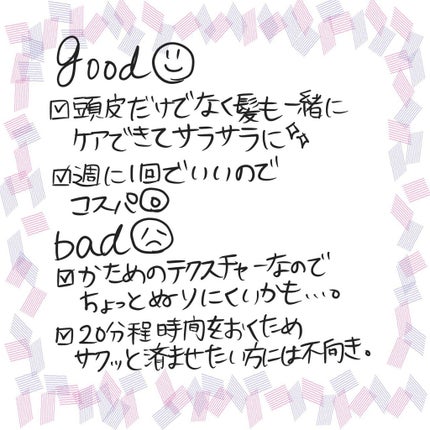 good
☑頭皮だけでなく髪も一緒に
ケアできてサラサラに✨
☑週に1回でいいので
コスパ◎
bad
☑かためのテクスチャーなので
ちょっとぬりにくいかも…。
☑20分程時間をおくため
サクッと済ませたい方には不向き。